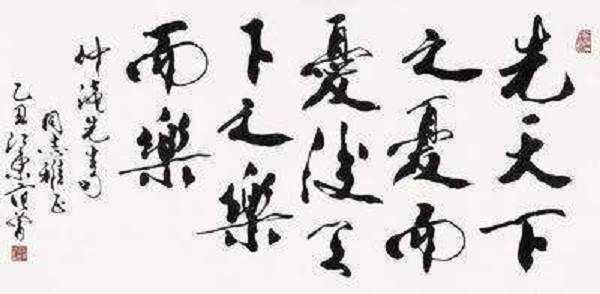 先天下
之憂而
憂後天
下之樂
而樂
仲淹先生句
同志雅正
乙丑江東范曾